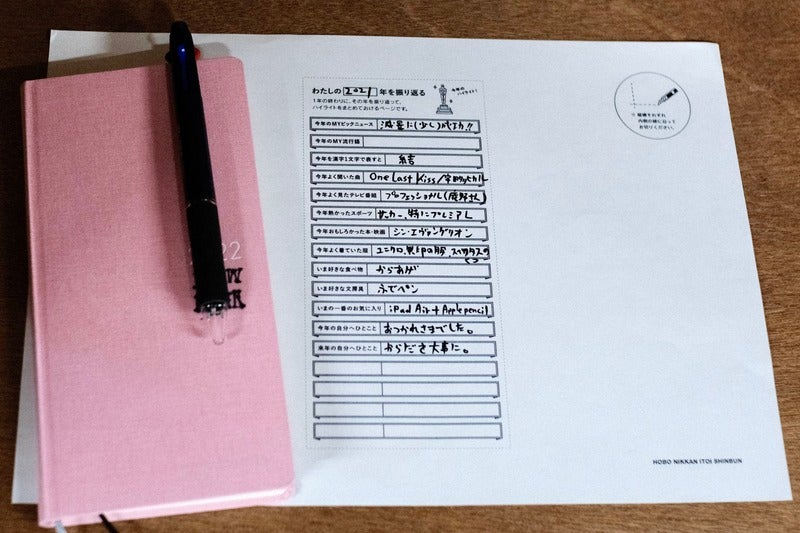 わたしの 2021 年を振り返る
1年の終わりに、その年を振り返って、
ハイライトをまとめておけるページです。
今年の
ハイライト!
今年のMYビックニュース 減量に(少し)成功!!
今年のMY流行語
今年を漢字1文字で表すと 結
今年よく聞いた曲 One Last Kiss/
今年よく見たテレビ番組 プロフェッショナル(庵野さん)
今年熱かったスポーツ サッカー、特にプレミアL
今年おもしろかった本・映画 シン・エヴァンゲリオン
今年よく着ていた服 ユニクロ、無印の服、
いま好きな食べ物 からあげ
いま好きな文房具 ふでペン
いまの一番のお気に入り iPad Air + Apple pencil
今年の自分へひとこと おつかれさまでした。
来年の自分へひとこと からだを大事に。
※ 縦横をわずれ
内側の線に沿って
お切りください。
2022
HOBO NIKKAN ITOI SHINBUN